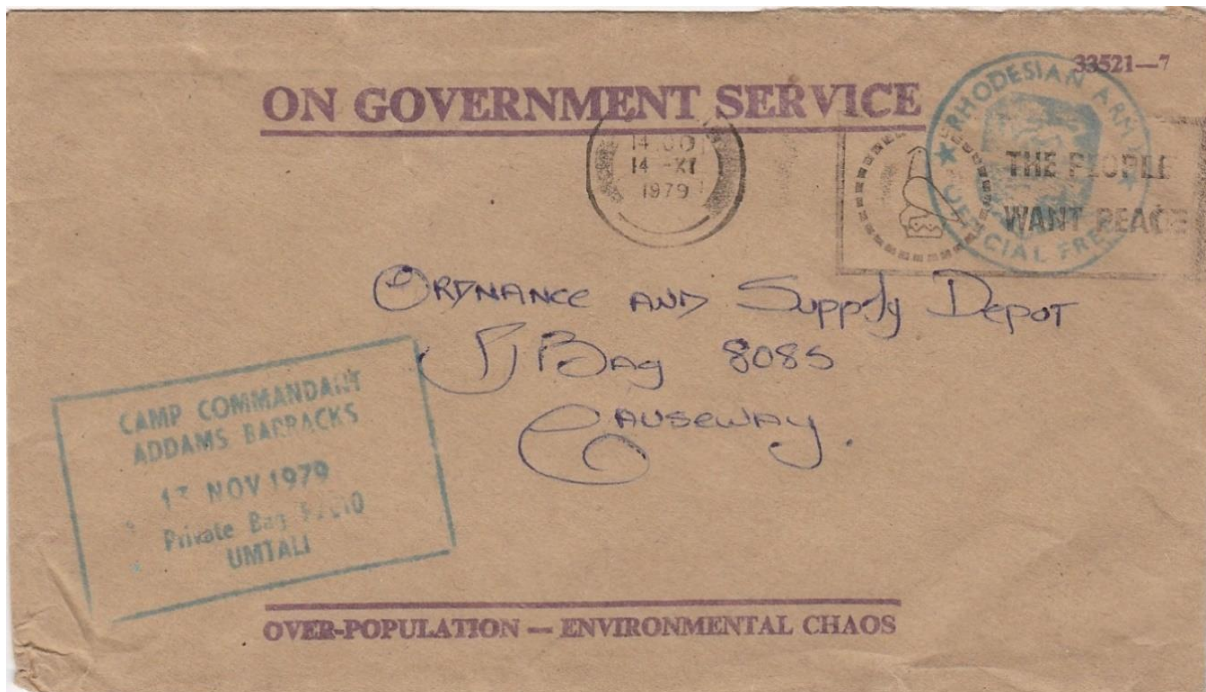 33521—7
ON GOVERNMENT SERVICE
RHODESIAN ARMY
OFFICIAL FREE
14 XI
1979
THE PEOPLE
WANT PEACE
ORDNANCE AND Supply Depot
P/BAg 8085
CAUSEWAY.
CAMP COMMANDANT
ADDAMS BARRACKS
13 NOV 1979
Private Bag
UMTALI
OVER-POPULATION — ENVIRONMENTAL CHAOS